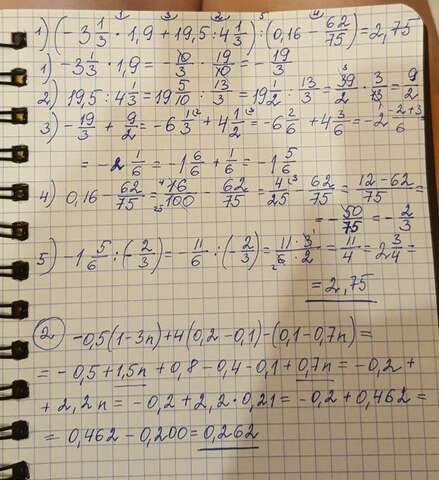 1) (-3 1/3 · 1,9 + 19,5 : 4 1/3) : (0,16 - 62/75) = 2,75
1) -3 1/3 · 1,9 = -10/3 · 19/10 = -19/3
2) 19,5 : 4 1/3 = 19 5/10 : 13/3 = 19 1/2 : 13/3 = 39/2 · 3/13 = 9/2
3) -19/3 + 9/2 = -6 1/3 + 4 1/2 = -6 2/6 + 4 3/6 = -2 (-2+3)/6 =
= -2 1/6 = -1 6/6 + 1/6 = -1 5/6
4) 0,16 - 62/75 = 16/100 - 62/75 = 4/25 - 62/75 = (12-62)/75 =
= -50/75 = -2/3
5) -1 5/6 : (-2/3) = -11/6 : (-2/3) = (11·3)/(6·2) = 11/4 = 2 3/4 =
= 2,75
2 -0,5(1-3n)+4(0,2-0,1)-(0,1-0,7n) =
= -0,5+1,5n+0,8-0,4-0,1+0,7n = -0,2+
+2,2n = -0,2+2,2·0,21 = -0,2+0,462 =
= 0,462-0,200 = 0,262